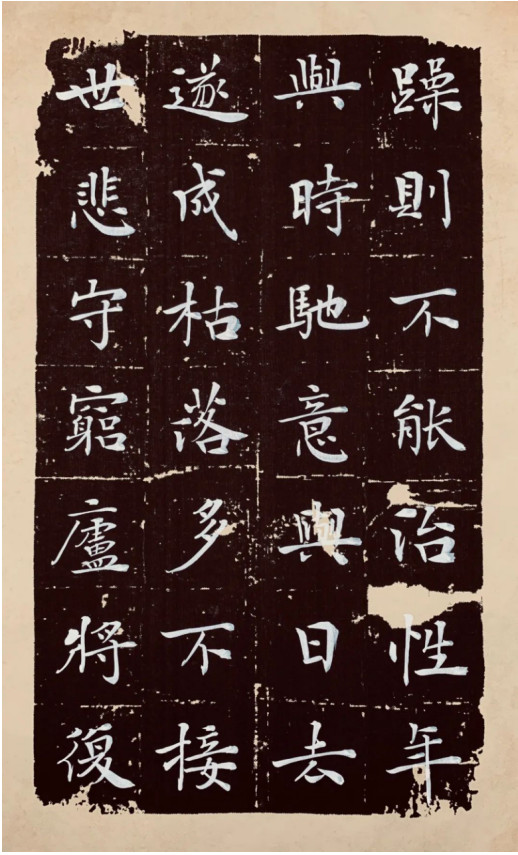 躁則不能治性年
與時馳意與日去
遂成枯落多不接
世悲守窮廬將復